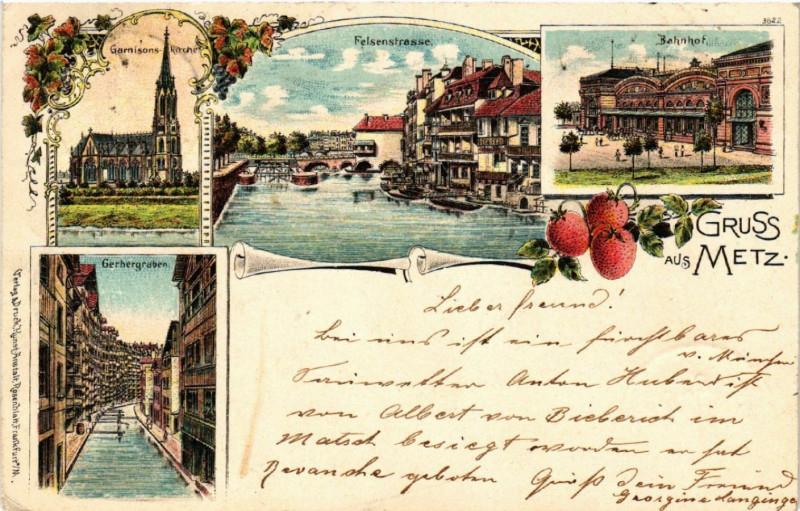 3622
Garnisons-kirche
Felsenstrasse.
Bahnhof.
GRUSS
AUS METZ.
Gerbergraben.
Verlag u. Druck, Kunst-Anstalt, Rosenblatt, Frankfurt a/M.
Lieber Freund!
bei uns ist ein furchtbares
v. München
Anton Huber ist
von Albert von Bieberich im
Match besiegt worden er hat
Revanche geboten Gruß dein Freund
Georgine